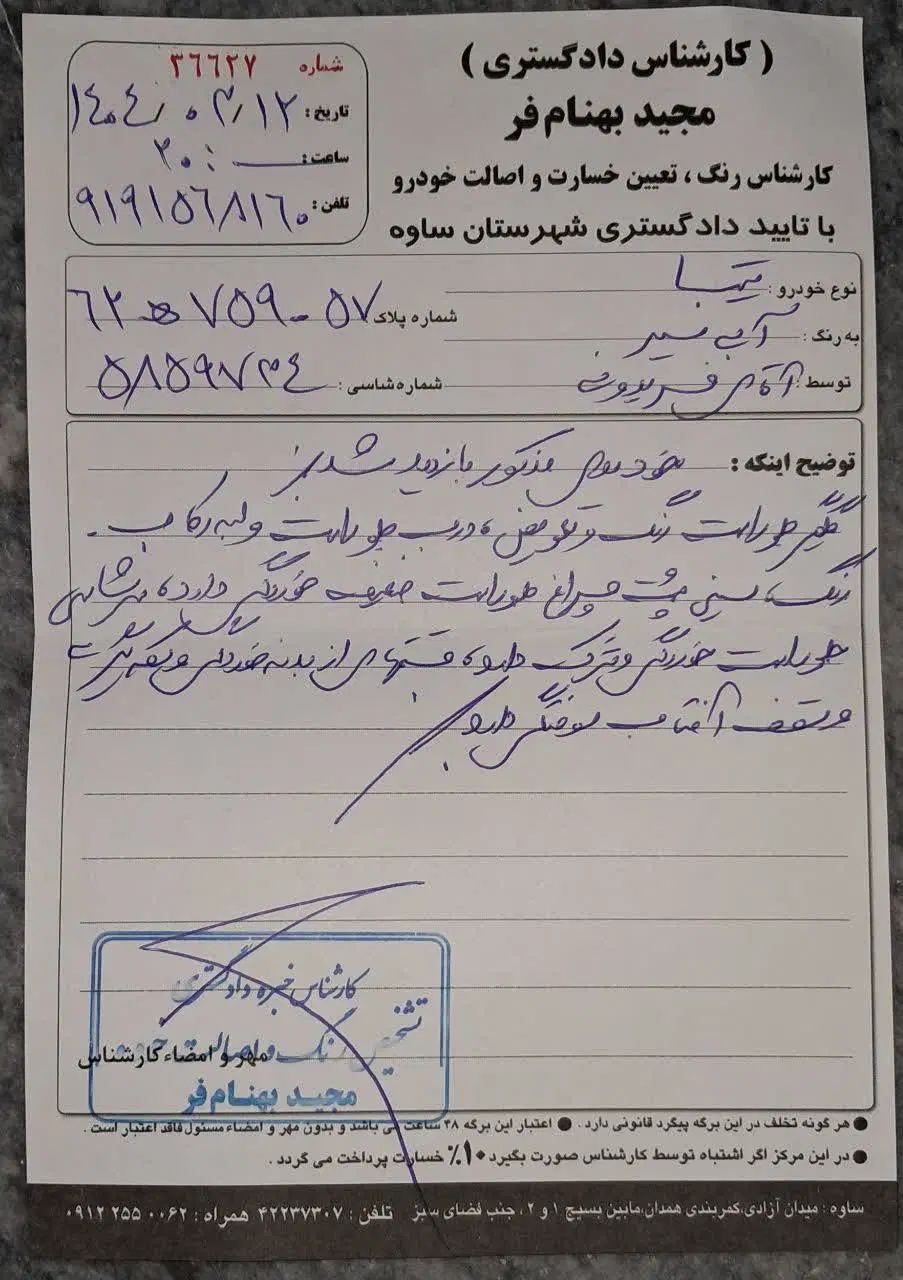 ( کارشناس دادگستری )
مجید بهنام فر
کارشناس رنگ ، تعیین خسارت و اصالت خودرو
با تایید دادگستری شهرستان ساوه
شماره ۳۶۶۲۷
تاریخ : ۱۴۰۴/۰۳/۱۲
ساعت : ۲۰:
تلفن : ۹۱۹۱۵۶۸۱۶۰
نوع خودرو : تیبا
شماره پلاک ۶۲ ۷۵۹-۵۷
به رنگ : آبی سیر
توسط : آقای فریدونی
شماره شاسی : ۵۸۵۹۷۳۴
توضیح اینکه : خودروی مذکور بازدید شد:
گلگیر جلو راست رنگ و تعویض، درب جلو راست و لبه رکاب
رنگ، سینی پشت چراغ جلو راست خوردگی دارد، سرشاسی
جلو راست خوردگی و ترک دارد، قسمتهای از بدنه خوردگی
و سقف آفتاب سوختگی دارد
کارشناس خبره دادگستری
تشخیص رنگ و اصالت خودرو
مجید بهنام فر
مهر و امضاء کارشناس
● هر گونه تخلف در این برگه پیگرد قانونی دارد . ● اعتبار این برگه ۴۸ ساعت می باشد و بدون مهر و امضاء مسئول فاقد اعتبار است .
● در این مرکز اگر اشتباه توسط کارشناس صورت بگیرد ۱۰٪ خسارت پرداخت می گردد .
ساوه : میدان آزادی،کمربندی همدان،مابین بسیج ۱ و ۲ ، جنب فضای سبز تلفن : ۴۲۲۳۷۳۰۷ همراه : ۰۹۱۲ ۲۵۵ ۰۰۶۲